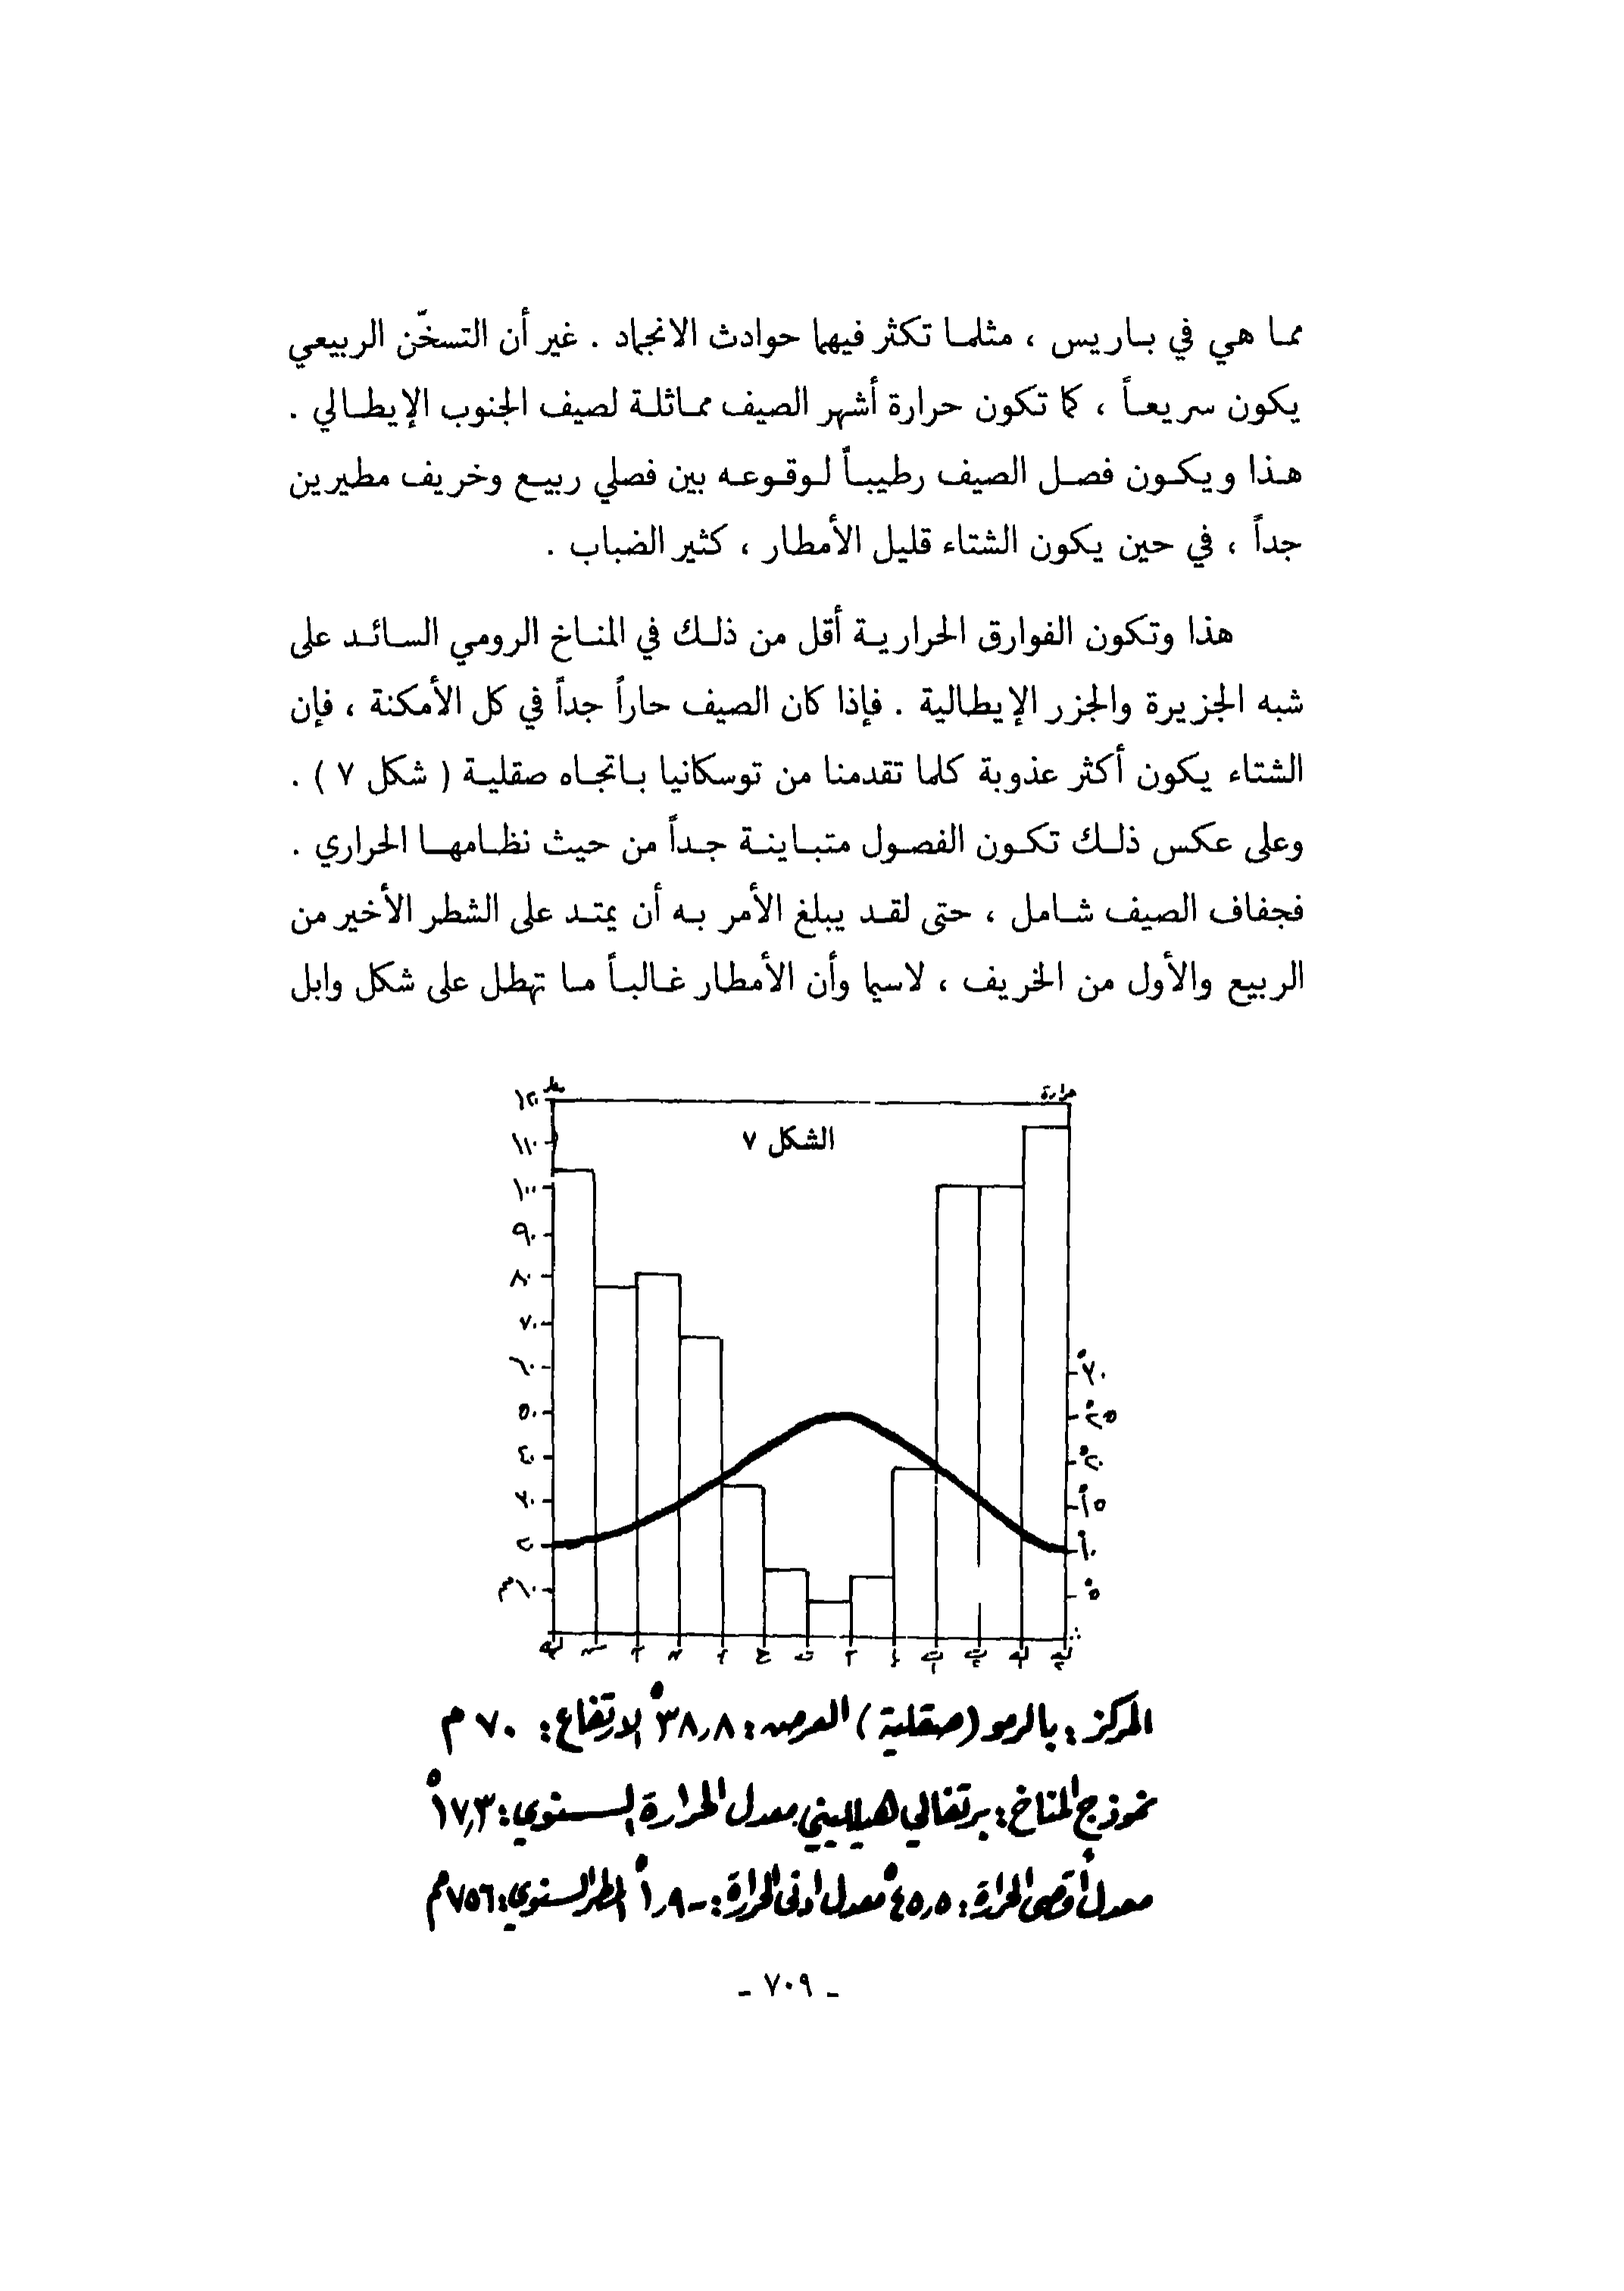 مما هي في باريس ، مثلما تكثر فيها حوادث الانجماد . غير أن التسخّن الربيعي
يكون سريعاً ، كما تكون حرارة أشهر الصيف مماثلة لصيف الجنوب الإيطالي .
هذا ويكون فصل الصيف رطيباً لوقوعه بين فصلي ربيع وخريف مطيرين
جداً ، في حين يكون الشتاء قليل الأمطار ، كثير الضباب .
هذا وتكون الفوارق الحرارية أقل من ذلك في المناخ الرومي السائد على
شبه الجزيرة والجزر الإيطالية . فإذا كان الصيف حاراً جداً في كل الأمكنة ، فإن
الشتاء يكون أكثر عذوبة كلما تقدمنا من توسكانيا باتجاه صقلية ( شكل ٧ ) .
وعلى عكس ذلك تكون الفصول متباينة جداً من حيث نظامها الحراري .
فجفاف الصيف شامل ، حتى لقد يبلغ الأمر به أن يمتد على الشطر الأخير من
الربيع والأول من الخريف ، لاسيما وأن الأمطار غالباً ما تهطل على شكل وابل
حرارة
الشكل ٧
١٢٠
١١٠
١٠٠
٩٠
٨٠
٧٠
٦٠
٥٠
٤٠
٣٠
٢٠
١٠م
°٣٠
°٢٥
°٢٠
°١٥
°١٠
°٥
المركز : بالرمو (صقلية) العرض : ٣٨,٨° الارتفاع : ٧٠ م
نموذج المناخ : برتغالي هيلليني معدل الحرارة السنوي : ١٧,٣°
معدل أقصى الحرارة : ٤٥,٥° معدل ادنى الحرارة : -١,٩° المطر السنوي : ٧٥٦ م
ـ ٧٠٩ ـ